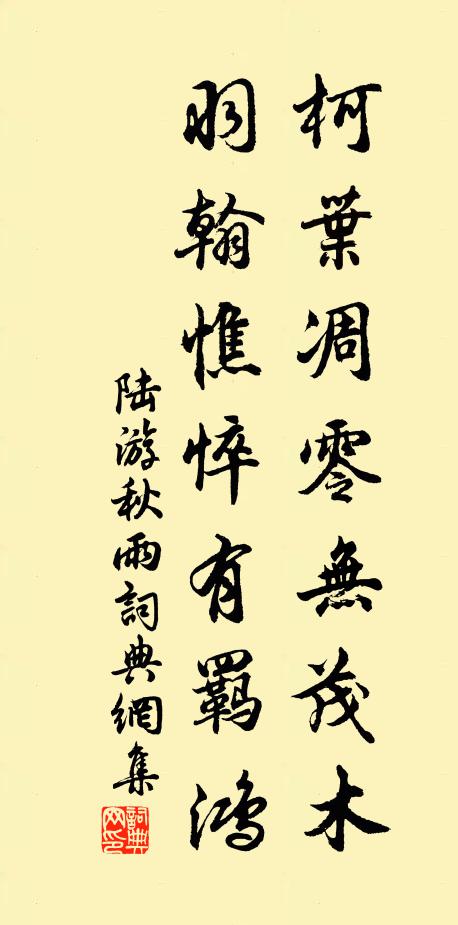 柯葉凋零無茂木
羽翰憔悴有羈鴻
陆游秋雨詞典網集
詞典网印